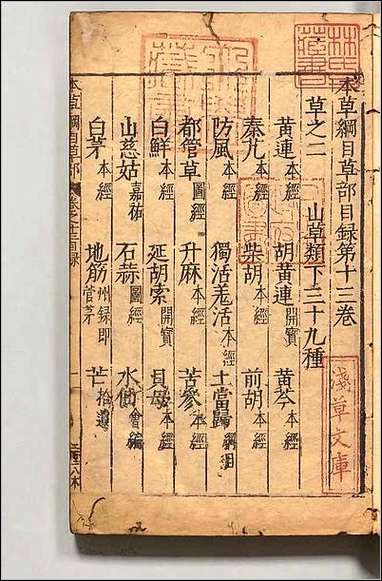 本草綱目草部目録第十三卷
草之二 山草類下三十九種
黃連本經 胡黃連開寶 黃芩本經
秦艽本經 柴胡本經 前胡
防風本經 獨活羌活本經 土當歸綱目
都管草圖經 升麻本經 苦參本經
白鮮本經 延胡索開寶 貝母本經
山慈姑嘉祐 石蒜圖經 水仙會編
白茅本經 地筋 菅茅 芒拾遺
本草綱目草部 卷之十三目録 一
淺草文庫
林氏藏書